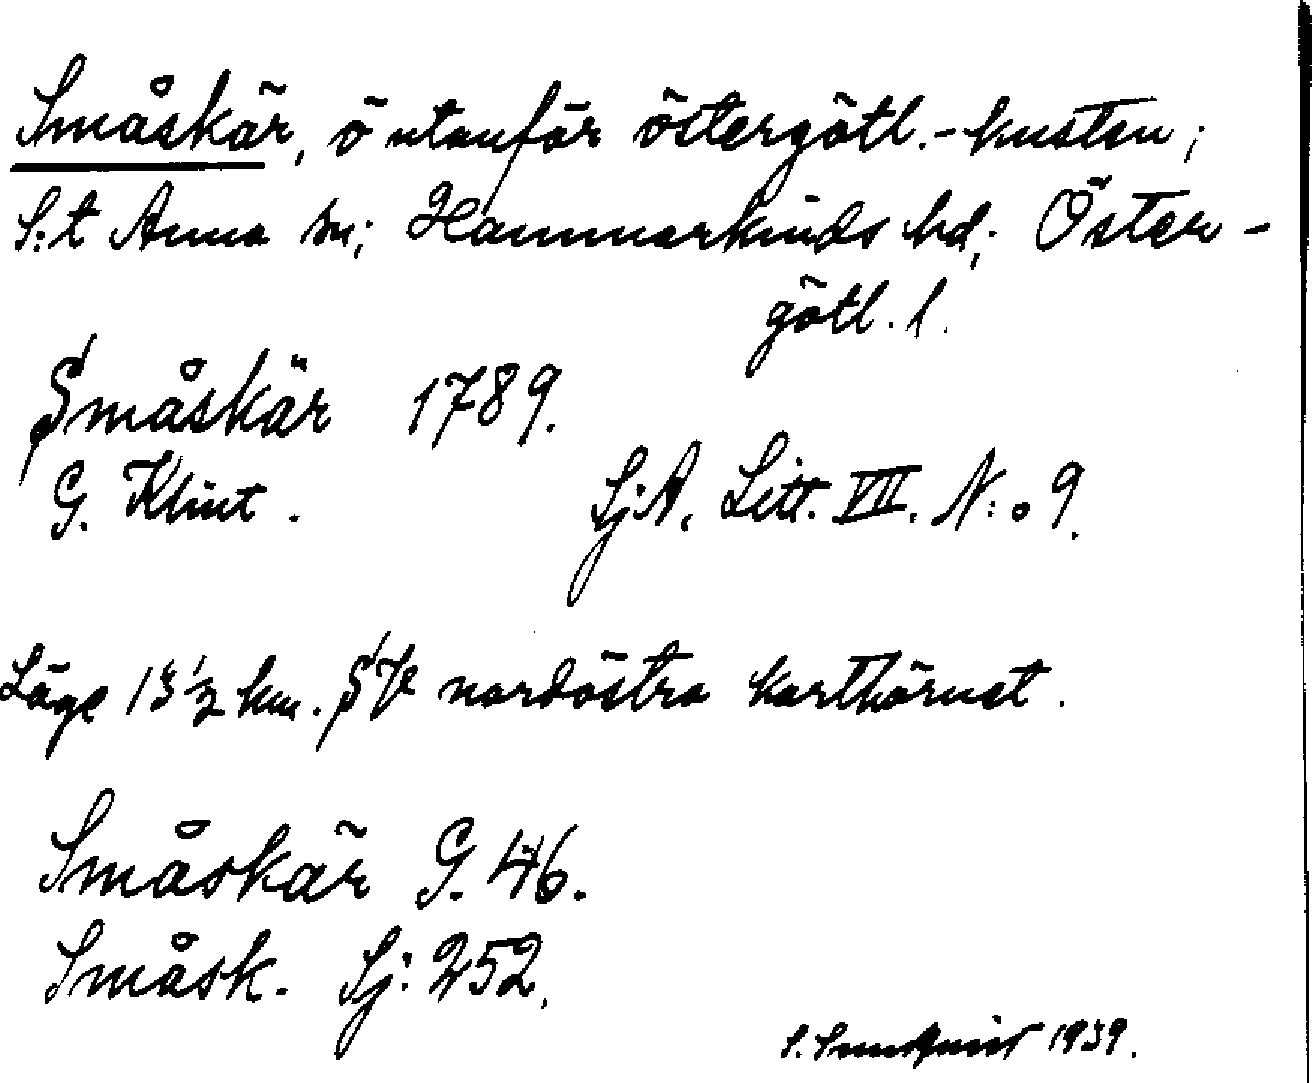 Småskär, ö utanför östergötl.-kusten;
S:t Anna sn; Hammarkinds hd; Öster-
götl. l.
Småskär 1789.
G. Klint. SjA. Litt. VII. N:o 9.
Läge 13 1/2 km. SV nordöstra karthörnet.
Småskär G. 46.
Småsk. Sj: 252.
S. Sundquist 1939.